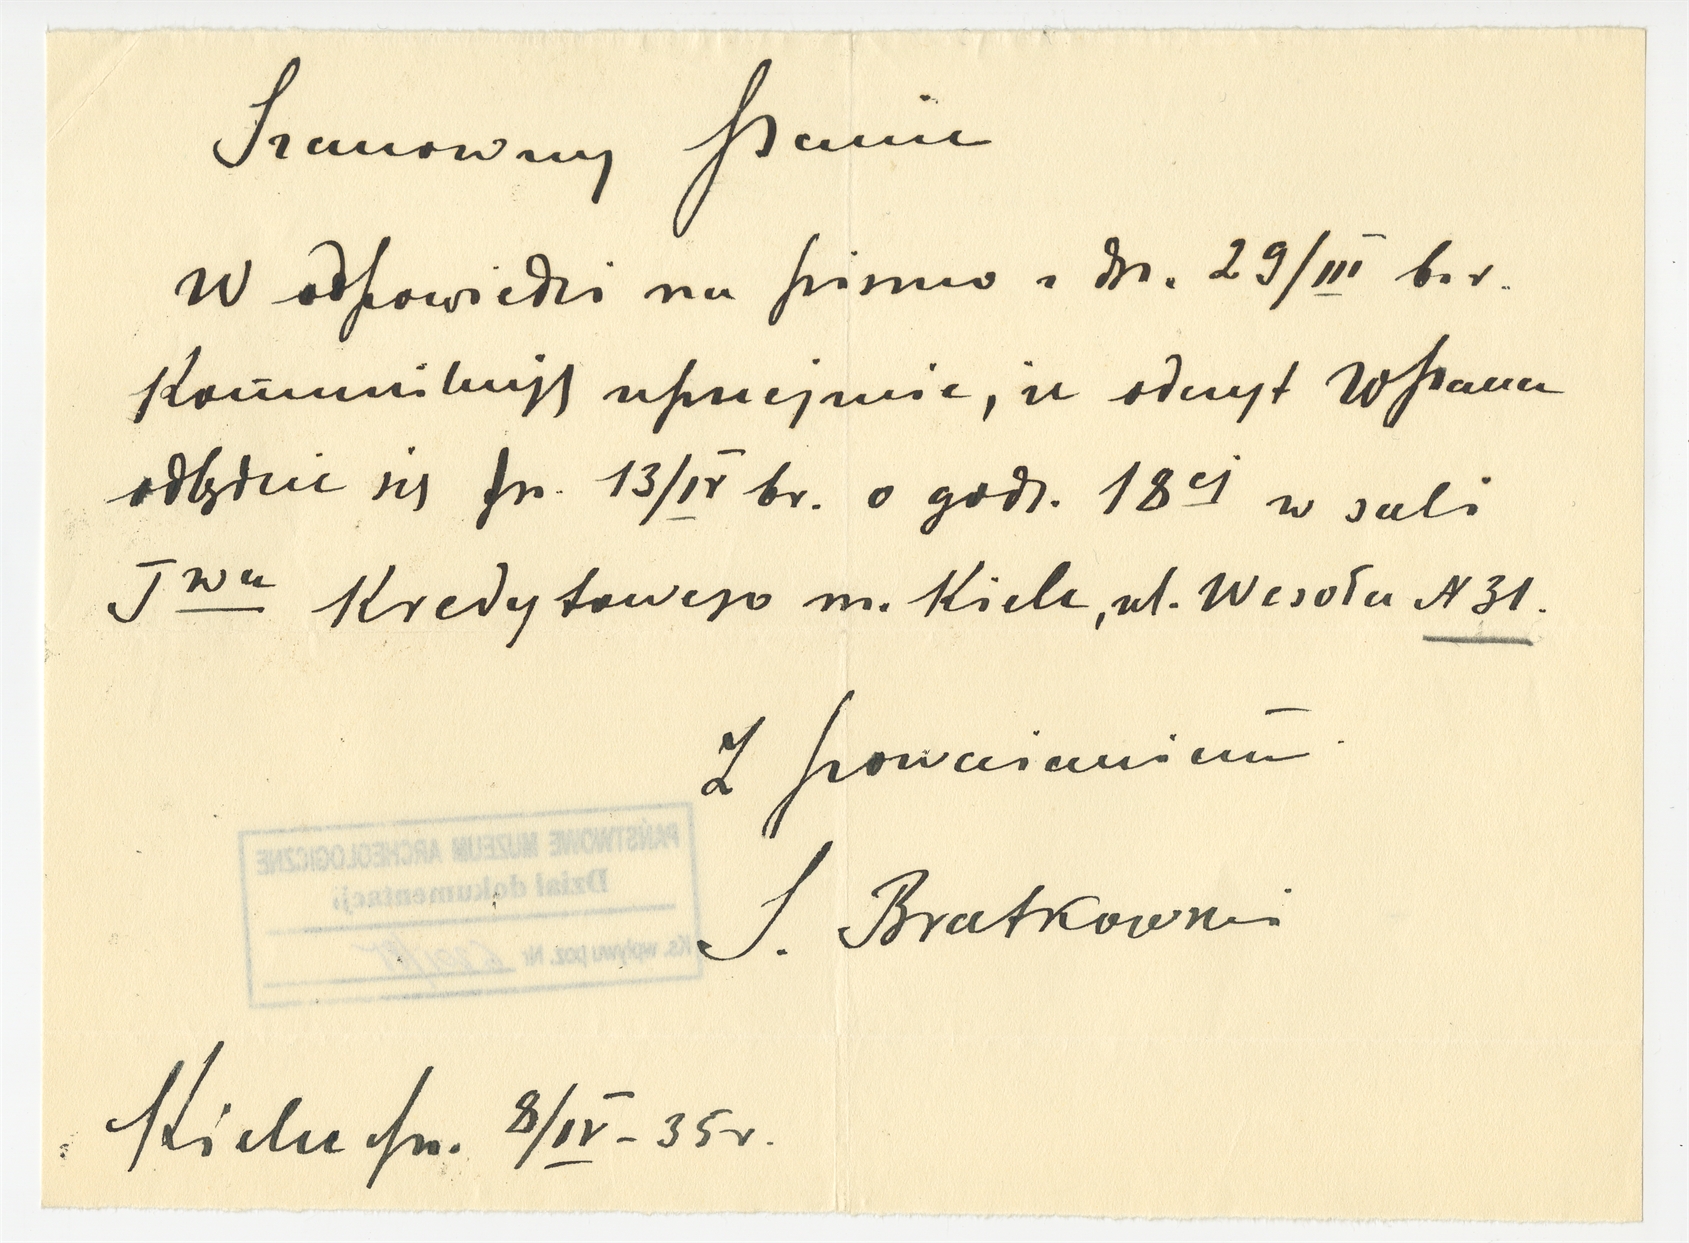 Szanowny Panie
W odpowiedzi na pismo z dn. 29/III b.r.
Komunikuję uprzejmie, iż odczyt WPana
odbędzie się dn. 13/IV br. o godz. 18ej w sali
Twa Kredytowego m. Kielc, ul. Wesoła N 31.
Z poważaniem
S. Bratkowski
PAŃSTWOWE MUZEUM ARCHEOLOGICZNE
Dział dokumentacji
Ks. wpływu poz. Nr
Kielce dn. 8/IV - 35 r.